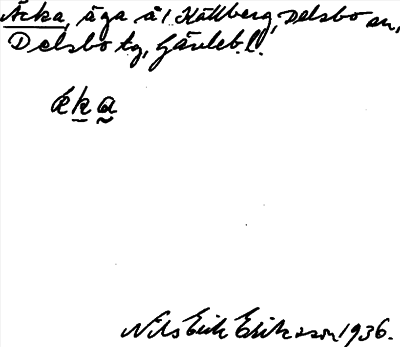 Äcka, äga å l. Källberg, Delsbo sn,
Delsbo tg, Gävleb. l.
æka
Nils Erik Eriksson 1936.